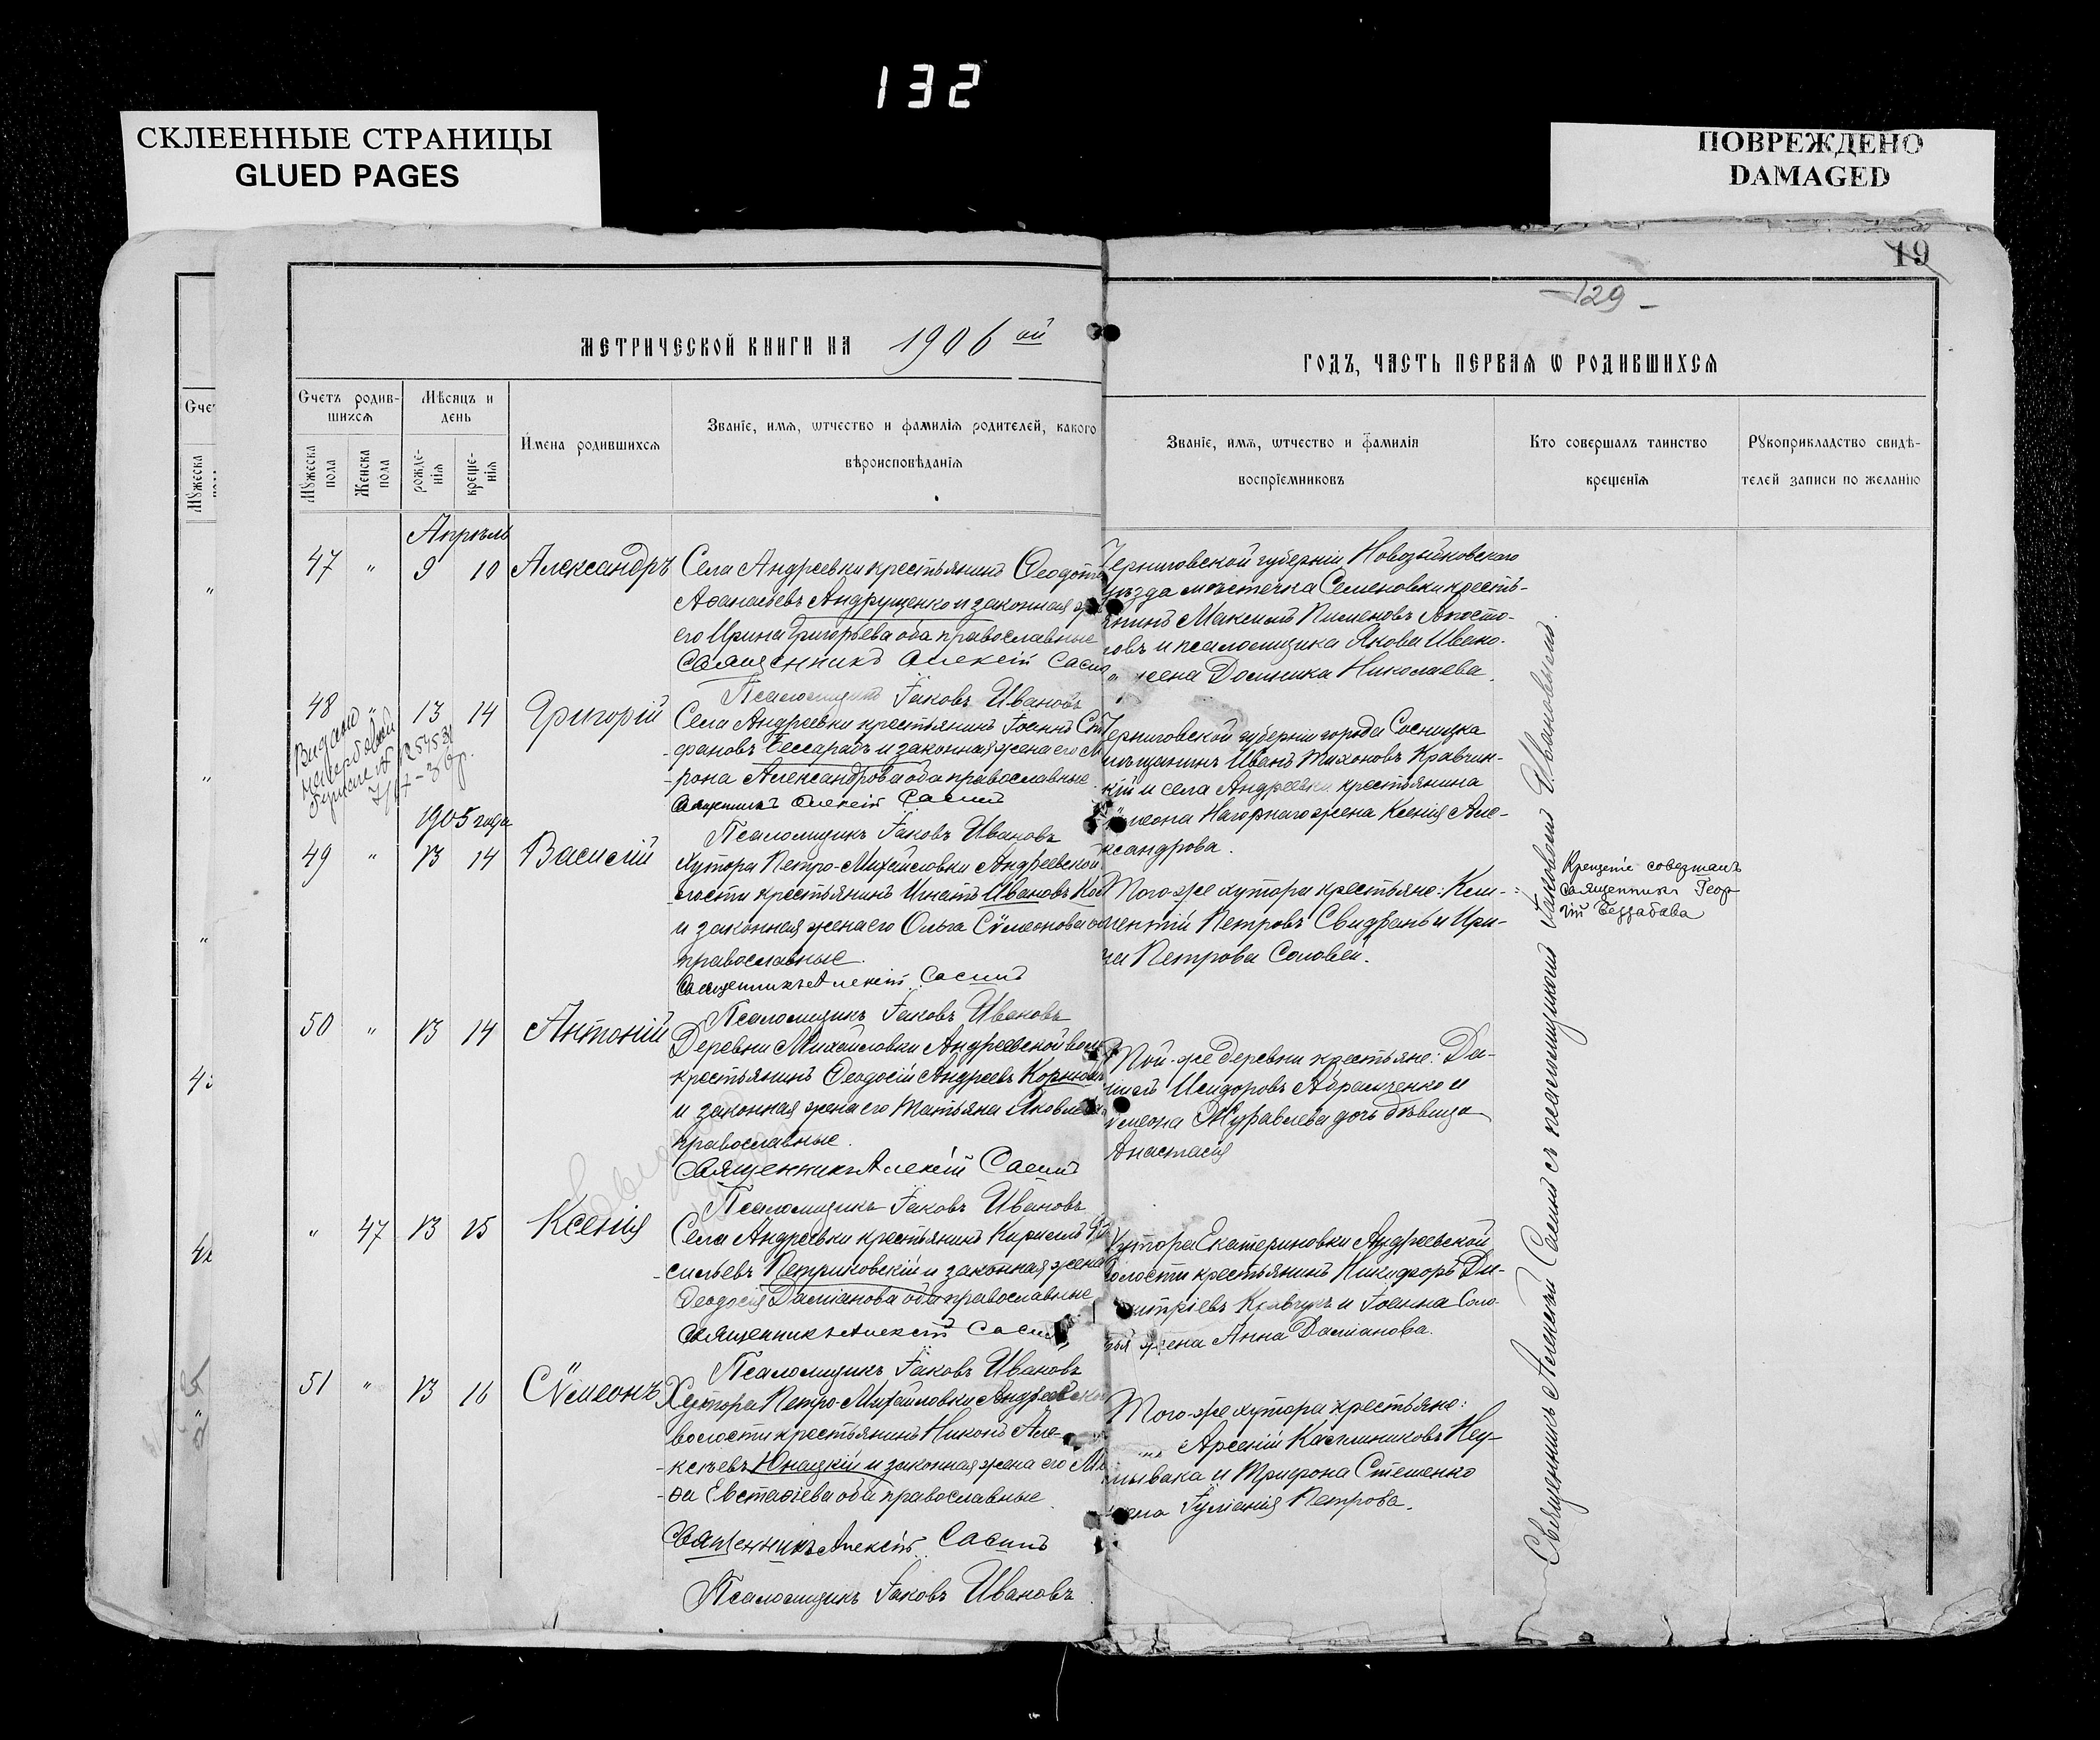 132
СКЛЕЕННЫЕ СТРАНИЦЫ
GLUED PAGES
ПОВРЕЖДЕНО
DAMAGED
19
-129-
МЕТРИЧЕСКОЙ КНИГИ НА 1906 ой
ГОДЪ, ЧАСТЬ ПЕРВАѦ Ѡ РОДИВШИХСѦ
Счетъ родив-
шихсѧ
Мѣсяцъ и
день
Мꙋжеска
пола
Женска
пола
рожде-
нїѧ
креще-
нїѧ
Имена родившихсѧ
Званїе, имѧ, ѿтчество и фамилїѧ родителей, какого
вѣроисповѣданїѧ
Званїе, имѧ, ѿтчество и фамилїѧ
воспрїемниковъ
Кто совершалъ таинство
крещенїѧ
Рꙋкоприкладство свидѣ-
телей записи по желанїю
Апрѣль
47 " 9 10 Александръ
Села Андреевки крестьянинъ Ѳеодотъ
Аѳанасьевъ Андрущенко и законная
его Ирина Григорьева оба православные
Священникъ Алексій
Псаломщикъ Іаковъ Ивановъ
Черниговской губерніи Новозыбковскаго
уѣзда мѣстечка Семеновки кресть-
янинъ Максимъ Пименовъ Апосто-
ловъ и псаломщика Якова Ивано-
жена Домника Николаева.
48 " 13 14 Григорій
Села Андреевки крестьянинъ Іоаннъ Сте
фановъ Бессарабъ и законная жена его М
-рона Александрова оба православные.
Священникъ Алексій
Псаломщикъ Іаковъ Ивановъ
Черниговской губерніи города Сосницка
мѣщанинъ Иванъ Тихоновъ Кравчин-
кій и села Андреевки крестьянина
Нагорнаго жена Ксенія Але-
ксандрова.
1905 года
49 " 13 14 Василій
Хутора Петро-Михайловки Андреевской
волости крестьянинъ Игнатъ Ивановъ
и законная жена его Ольга Сѵмеонова
православные.
Священникъ Алексій
Псаломщикъ Іаковъ Ивановъ
Того-же хутора крестьяне: Кли-
ментій Петровъ Свидранъ и Ири-
на Петрова Соловей.
Крещеніе совершалъ
священникъ Геор-
гій
50 " 13 14 Антоній
Деревни Михайловки Андреевской вол
крестьянинъ Ѳеодосій Андреевъ
и законная жена его Татьяна Яковлева
православные.
Священникъ Алексій
Псаломщикъ Іаковъ Ивановъ
Той-же деревни крестьяне: Да-
ніилъ Исидоровъ Абрамченко и
Сѵмеона Журавлева дочь дѣвица
Анастасія
" 47 13 15 Ксенія
Села Андреевки крестьянинъ Кириллъ Ва
-сильевъ Петриковскій и законная жена
Ѳеодосія Даміанова оба православные
Священникъ Алексій
Псаломщикъ Іаковъ Ивановъ
Хутора Екатериновки Андреевской
волости крестьянинъ Никифоръ Ди-
митріевъ Кравчукъ и Іоанна Соло-
вья жена Анна Даміанова.
51 " 13 16 Сѵмеонъ
Хутора Петро-Михайловки Андреевской
волости крестьянинъ Никонъ Але-
-ксѣевъ Юнацкій и законная жена его Ма
-ѳа Евстаѳіева оба православные.
Священникъ Алексій
Псаломщикъ Іаковъ Ивановъ
Того-же хутора крестьяне:
Арсеній
и Трифона Стешенко
жена Іуліанія Петрова.
Священникъ Алексій съ псаломщикомъ Іаковомъ Ивановымъ.